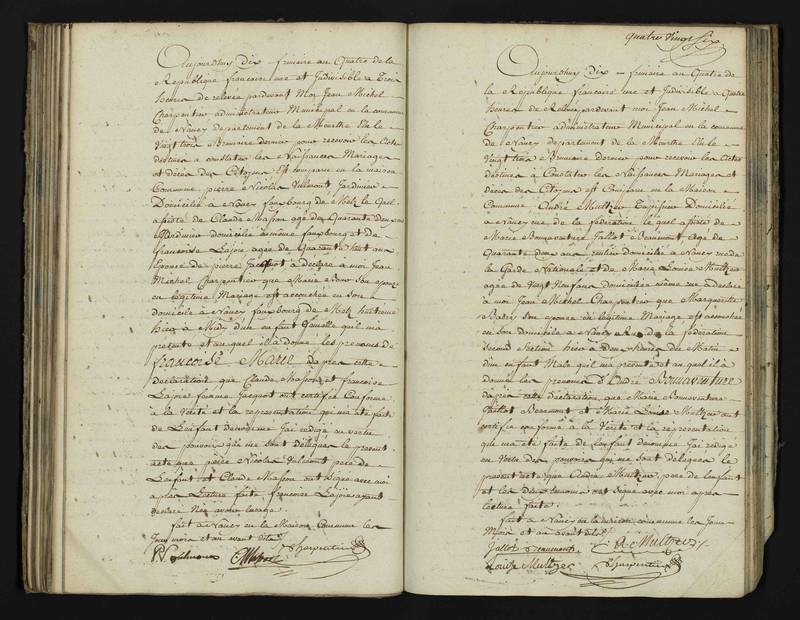 Aujourdhuy dix frimaire an Quatre de la
République française une et Indivisible a trois
heures de relevée pardevant Moi Jean Michel
Charpentier administrateur Municipal en la commune
de Nancy departement de la Meurthe Elu le
Vingt trois Brumaire dernier pour recevoir les actes
destinés a constater les Naissances Mariages
et décès des Citoyens Est comparu en la maison
Commune pierre Nicolas Vulmont Jardinier
Domicilié a Nancy fauxbourg de Metz le quel
assisté de Claude Masson agé de Quarante deux ans
Jardinier domicilié même fauxbourg et de
françoise Lajoie agée de Quarante huit ans
Epouse de pierre Jacquot a déclaré a moi Jean
Michel Charpentier que Marie son epouse
en légitime Mariage est accouchée en son
domicile a Nancy fauxbourg de Metz
hier a Midy d'un enfant femelle quil ma
présenté et auquel il a donné les prenoms de
françoise Marie Dapres cette
declaration que Claude Masson et françoise
Lajoie femme Jacquot ont certifié Conforme
a la Vérité et la représentation qui ma été faite
de Lenfant denommé Jai redigé en vertu
des pouvoirs qui me sont délégués le present
acte que pierre Nicolas Vulmont pere de
Lenfant et Claude Masson ont signé avec moi
apres Lecture faite françoise Lajoie ayant
declaré Ne savoir
fait a Nancy en la Maison Commune les
Jour mois et an avant dits
CMasson Charpentier
quatre Vingt Six
Aujourdhuy dix frimaire an Quatre de
la République française une et Indivisible a Quatre
heures de Relevée pardevant moi Jean Michel
Charpentier administrateur Municipal en la commune
de Nancy departement de la Meurthe Elu le
Vingt trois Brumaire dernier pour recevoir les actes
destinés à Constater les Naissances Mariages et
décès des Citoyens est Comparu en la Maison
Commune André Multzer Domicilié
a Nancy rue de la fédération le quel assisté de
Marie Bonaventure Jallot Beaumont, agé de
Quarante deux ans rentier domicilié a Nancy rue de
la Garde Nationale et de Marie Louise Multzer
agée de Vingt ans domiciliée même rue a déclaré
a moi Jean Michel Charpentier que Marguerite
son epouse en légitime Mariage est accouchée
en son domicile a Nancy Rue de la fédération
second section hier a deux heures du Matin
d'un enfant Male quil ma présenté et au quel il a
donné les prenoms d'André Bonnaventure
Dapres cette déclaration, que Marie Bonnaventure
Jallot Beaumont et Marie Louise Multzer ont
certifié conforme a la Vérité et la representation
qui ma été faite de lenfant denommé Jai redigé
en Vertu des pouvoirs qui me sont délégués le
présent acte que André Multzer pere de lenfant
et les deux temoins ont signé avec moi apres
lecture faite.
fait a Nancy en la maison commune les Jour
Mois et an avant dits
Jallot Beaumont A Multzer
Louise Multzer Charpentier